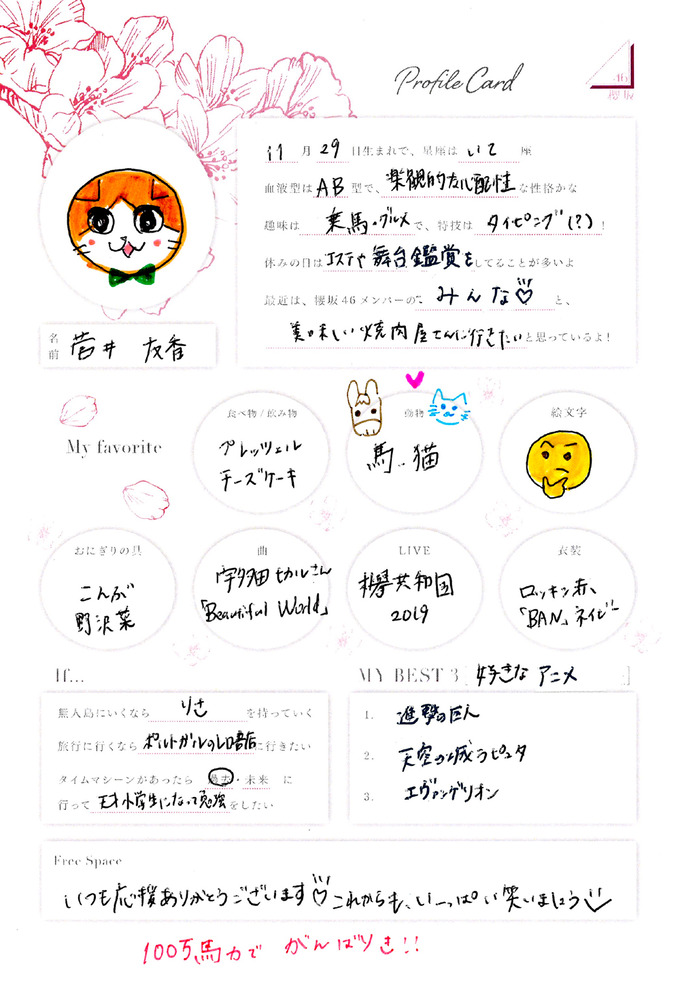 Profile Card
46
櫻坂
11月29日生まれで、星座はいて座
血液型はAB型で、楽観的な心配性な性格かな
趣味は乗馬・グルメで、特技はタイピング(?)!
休みの日はエステや舞台鑑賞をしてることが多いよ
最近は、櫻坂46メンバーので、みんな♡と、
美味しい焼肉屋さんに行きたいと思っているよ!
名前 菅井 友香
My favorite
食べ物/飲み物
プレッツェル
チーズケーキ
動物
馬、猫
絵文字
おにぎりの具
こんぶ
野沢菜
曲
宇多田ヒカルさん
「Beautiful World」
LIVE
欅共和国
2019
衣装
ロッキン赤、
「BAN」ネイビー
If...
無人島にいくなら りさ を持っていく
旅行に行くなら ポルトガルの に行きたい
タイムマシーンがあったら 過去・未来 に
行って天才小学生になって勉強をしたい
MY BEST 3 [好きな アニメ]
1. 進撃の巨人
2. 天空の城ラピュタ
3. エヴァンゲリオン
Free Space
いつも応援ありがとうございます♡これからも、いーっぱい笑いましょう
100万馬力で がんばりき!!